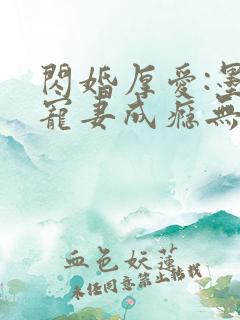 閃婚厚愛:墨
寵妻成癮無
血色妖蓮
未經同意禁止轉載